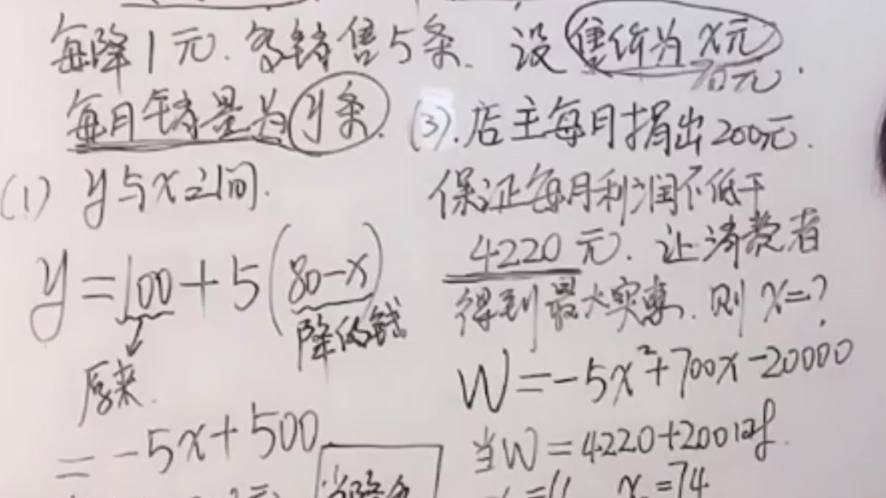 每降1元.多销售5条.设售价为x元
70元.
每月销量为y条.
(1) y与x之间.
y=100+5(80-x)
降的钱
原来.
=-5x+500
(3).店主每月捐出200元.
保证每月利润不低于
4220元.让消费者
得到最大实惠.则x=?
W=-5x²+700x-20000
当W=4220+200时.
=74